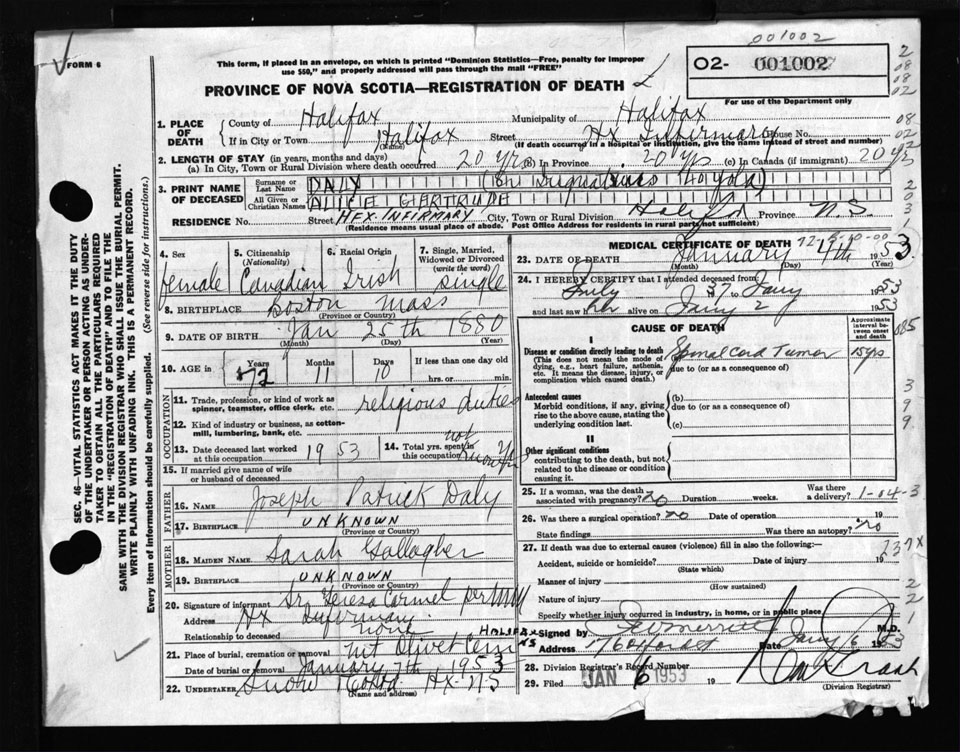 001002
FORM 6
This form, if placed in an envelope, on which is printed "Dominion Statistics—Free, penalty for improper
use $50," and properly addressed will pass through the mail "FREE"
O2- 001002
PROVINCE OF NOVA SCOTIA—REGISTRATION OF DEATH
For use of the Department only
1. PLACE OF DEATH
County of Halifax Municipality of Halifax
If in City or Town Halifax Street Hx Infirmary House No.
(Name) (If death occurred in a hospital or institution, give the name instead of street and number)
2. LENGTH OF STAY (in years, months and days)
(a) In City, Town or Rural Division where death occurred 20 yrs (b) In Province 20 yrs (c) In Canada (if immigrant) 20 yrs
3. PRINT NAME OF DECEASED
Surname or Last Name DALY
All Given or Christian Names ALICE GERTRUDE
RESIDENCE No. Street HFX-INFIRMARY City, Town or Rural Division Halifax Province N.S.
(Residence means usual place of abode. Post Office Address for residents in rural parts not sufficient)
4. Sex female
5. Citizenship (Nationality) Canadian
6. Racial Origin Irish
7. Single, Married, Widowed or Divorced (write the word) single
8. BIRTHPLACE Boston Mass
(Province or Country)
9. DATE OF BIRTH Jan 25th 1880
(Month) (Day) (Year)
10. AGE in Years 72 Months 11 Days 10 If less than one day old
hrs. or min.
OCCUPATION
11. Trade, profession, or kind of work as spinner, teamster, office clerk, etc. religious duties
12. Kind of industry or business, as cotton-mill, lumbering, bank, etc.
13. Date deceased last worked at this occupation 1953
14. Total yrs. spent in this occupation not known
15. If married give name of wife or husband of deceased
FATHER
16. NAME Joseph Patrick Daly
17. BIRTHPLACE UNKNOWN
(Province or Country)
MOTHER
18. MAIDEN NAME Sarah Gallagher
19. BIRTHPLACE UNKNOWN
(Province or Country)
20. Signature of informant Sr. Teresa Carmel
Address Hx Infirmary
Relationship to deceased none
21. Place of burial, cremation or removal Mt Olivet Cem HALIFAX NS
Date of burial or removal January 7th 1953
22. UNDERTAKER Snow Hx-N-S
(Name and address)
MEDICAL CERTIFICATE OF DEATH
23. DATE OF DEATH January 4th 1953.
(Month) (Day) (Year)
24. I HEREBY CERTIFY that I attended deceased from
July 37 to Jany 1953
and last saw her alive on Jany 2 1953
CAUSE OF DEATH
Approximate interval between onset and death
I
Disease or condition directly leading to death
(This does not mean the mode of dying, e.g., heart failure, asthenia, etc. It means the disease, injury, or complication which caused death.)
Spinal Cord Tumor 15 yrs
due to (or as a consequence of)
Antecedent causes
Morbid conditions, if any, giving rise to the above cause, stating the underlying condition last.
(b)
due to (or as a consequence of)
(c)
II
Other significant conditions
contributing to the death, but not related to the disease or condition causing it.
25. If a woman, was the death associated with pregnancy? no Duration weeks. Was there a delivery? 1-04-3
26. Was there a surgical operation? no Date of operation 19
State findings Was there an autopsy? no
27. If death was due to external causes (violence) fill in also the following:— 237X
Accident, suicide or homicide? Date of injury 19
(State which)
Manner of injury
(How sustained)
Nature of injury
Specify whether injury occurred in industry, in home, or in public place
Signed by Merritt M.D.
Address Date Jany 6 1953
28. Division Registrar's Record Number
29. Filed JAN 6 1953 19
(Division Registrar)
SEC. 46—VITAL STATISTICS ACT MAKES IT THE DUTY
OF THE UNDERTAKER OR PERSON ACTING AS UNDER-
TAKER TO OBTAIN ALL THE PARTICULARS REQUIRED
IN THE "REGISTRATION OF DEATH" AND TO FILE THE
SAME WITH THE DIVISION REGISTRAR WHO SHALL ISSUE THE BURIAL PERMIT.
WRITE PLAINLY WITH UNFADING INK. THIS IS A PERMANENT RECORD.
Every item of information should be carefully supplied. (See reverse side for instructions).